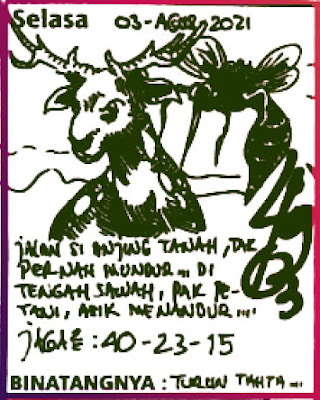 Selasa 03-AGUS 2021
JALAN SI ANJING TANAH, TAK
PERNAH MUNDUR ... DI
TENGAH SAWAH, PAK PE-
TANI, ASIK MENANDUR ...
JAGAE : 40-23-15
BINATANGNYA : TURUN TAHTA ...